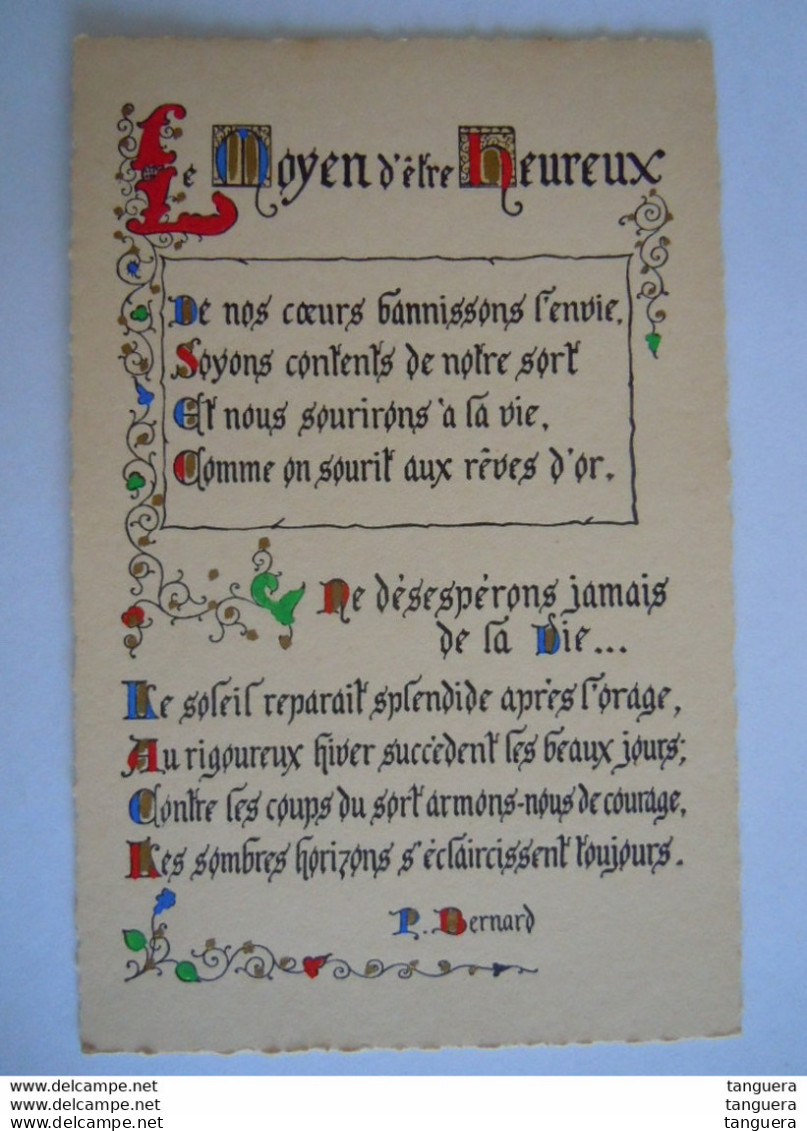 Le Moyen d'être heureux
De nos cœurs bannissons l'envie,
Soyons contents de notre sort
Et nous sourirons à la vie,
Comme on sourit aux rêves d'or.
Ne désespérons jamais
de la Vie...
Le soleil reparait splendide après l'orage,
Au rigoureux hiver succèdent les beaux jours;
Contre les coups du sort armons-nous de courage,
Les sombres horizons s'éclaircissent toujours.
P. Bernard
www.delcampe.net
www.delcampe.net
www.delcampe.net
tanguera
tanguera
tanguera